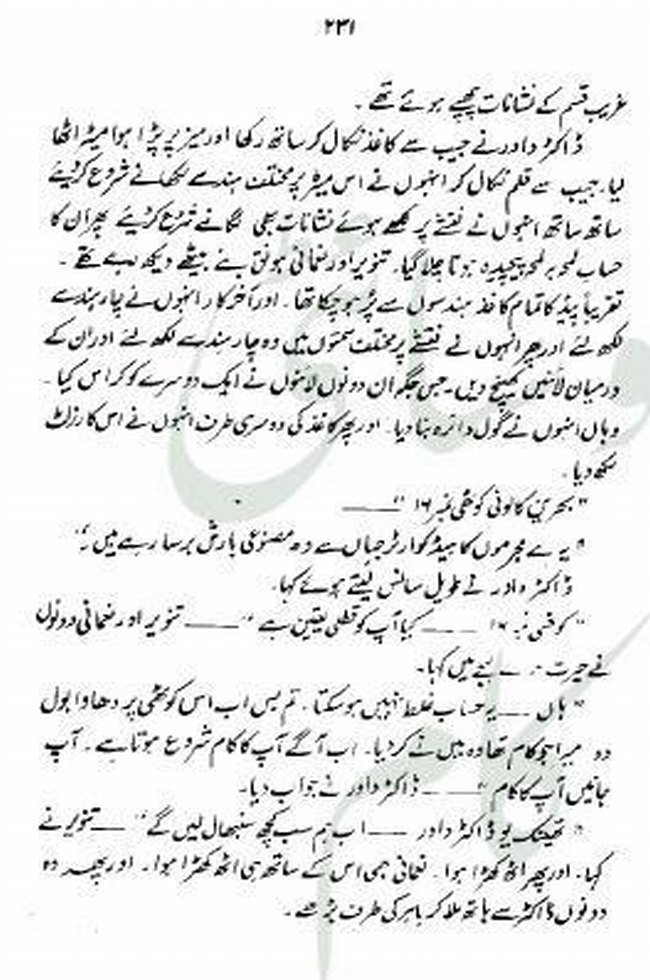 ۲۳۱
غریب قسم کے نشانات چھپے ہوئے تھے ۔
ڈاکٹر داور نے جیب سے کاغذ نکال کر ساتھ رکھا اور میز پر پڑا ہوا میٹر اٹھا
لیا۔ جیب سے قلم نکال کر انہوں نے اس میٹر پر مختلف ہندسے لکھانے شروع کردیئے
ساتھ ساتھ انہوں نے نقشے پر لکھے ہوئے نشانات بھی لگانے شروع کردیئے پھر ان کا
حساب لمحہ بر لمحہ پیچیدہ ہوتا چلا گیا۔ تنویر اور نعمانی ہونق بنے بیٹھے دیکھ رہے تھے ۔
تقریباً پیڈ کا تمام کاغذ ہندسوں سے پُر ہو چکا تھا۔ اور آخر کار انہوں نے چار ہندسے
لکھ لئے اور پھر انہوں نے نقشے پر مختلف سمتوں میں وہ چار ہندسے لکھ لئے اور ان کے
درمیان لائنیں کھینچ دیں۔ جس جگہ ان دونوں لائنوں نے ایک دوسرے کو کراس کیا ۔
وہاں انہوں نے گول دائرہ بنا دیا۔ اور پھر کاغذ کی دوسری طرف انہوں نے اس کا رزلٹ
لکھ دیا۔
" بحرین کالونی کوٹھی نمبر ۱۶ "ــــــ
" یہ ہے مجرموں کا ہیڈ کوارٹر جہاں سے وہ مصنوعی بارش برسا رہے ہیں ۔"
ڈاکٹر داور نے طویل سانس لیتے ہوئے کہا۔
" کوٹھی نمبر ۱۶ ــــــ کیا آپ کو قطعی یقین ہے "ــــــ تنویر اور نعمانی دونوں
نے حیرت لہجے میں کہا۔
" ہاں ــــ یہ حساب غلط نہیں ہو سکتا ۔ تم بس اب اس کوٹھی پر دھاوا بول
دو میرا جو کام تھا وہ میں نے کر دیا۔ اب آگے آپ کا کام شروع ہوتا ہے ۔ آپ
جانیں آپ کا کام "ــــ ڈاکٹر داور نے جواب دیا۔
" تھینک یو ڈاکٹر داور ــــ اب ہم سب کچھ سنبھال لیں گے "ــــ تنویر نے
کہا۔ اور پھر اٹھ کھڑا ہوا۔ نعمانی بھی اس کے ساتھ ہی اٹھ کھڑا ہوا۔ اور پھر وہ
دونوں ڈاکٹر سے ہاتھ ملا کر باہر کی طرف بڑھے ۔